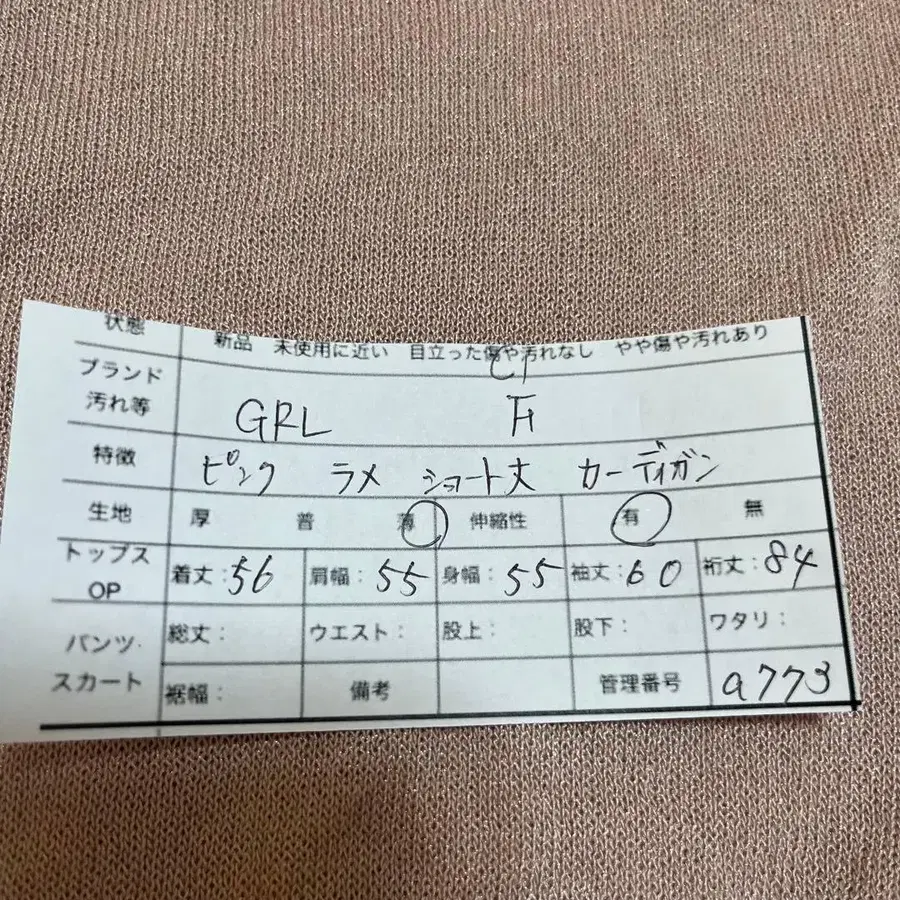 状態 新品 未使用に近い 目立った傷や汚れなし やや傷や汚れあり
ブランド
汚れ等 GRL F
特徴 ピンク ラメ ショート丈 カーディガン
生地 厚 普 薄 伸縮性 有 無
トップス
OP 着丈:56 肩幅:55 身幅:55 袖丈:60 裄丈:84
パンツ 総丈: ウエスト: 股上: 股下: ワタリ:
スカート 裾幅: 備考 管理番号 a773